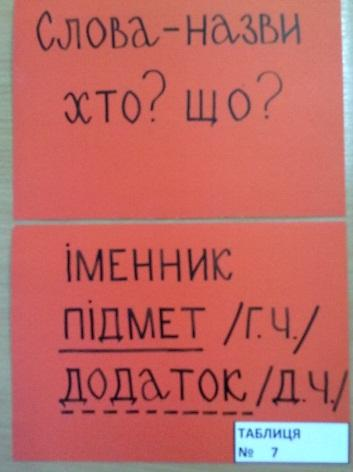 Слова-назви
хто? що?
іменник
підмет /г.ч./
додаток /д.ч./
ТАБЛИЦЯ
№ 7